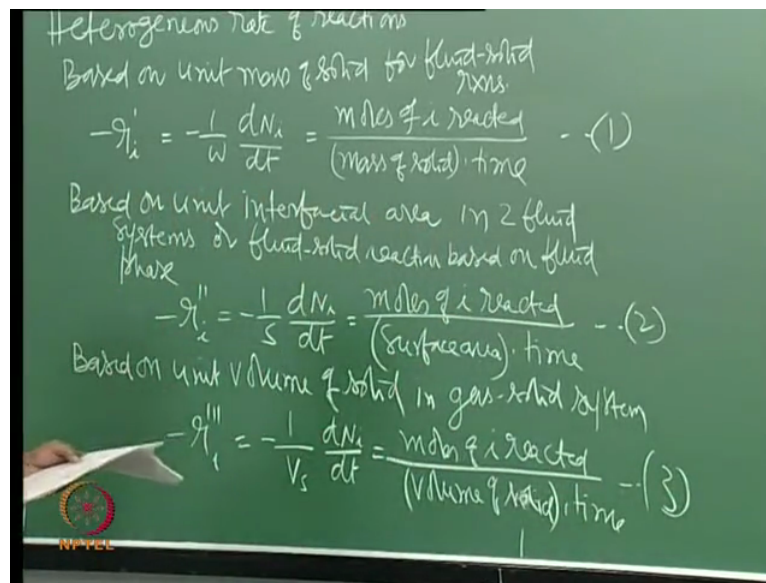 Heterogeneous rate of reactions
Based on unit mass of solid for fluid-solid
rxns.
-r_i' = -1/W dN_i/dt = moles of i reacted/(mass of solid).time --(1)
Based on unit interfacial area in 2 fluid
systems or fluid-solid reaction based on fluid
phase
-r_i'' = -1/S dN_i/dt = moles of i reacted/(Surface area).time --(2)
Based on unit volume of solid in gas-solid system
-r_i''' = -1/V_s dN_i/dt = moles of i reacted/(Volume of solid).time --(3)
NPTEL